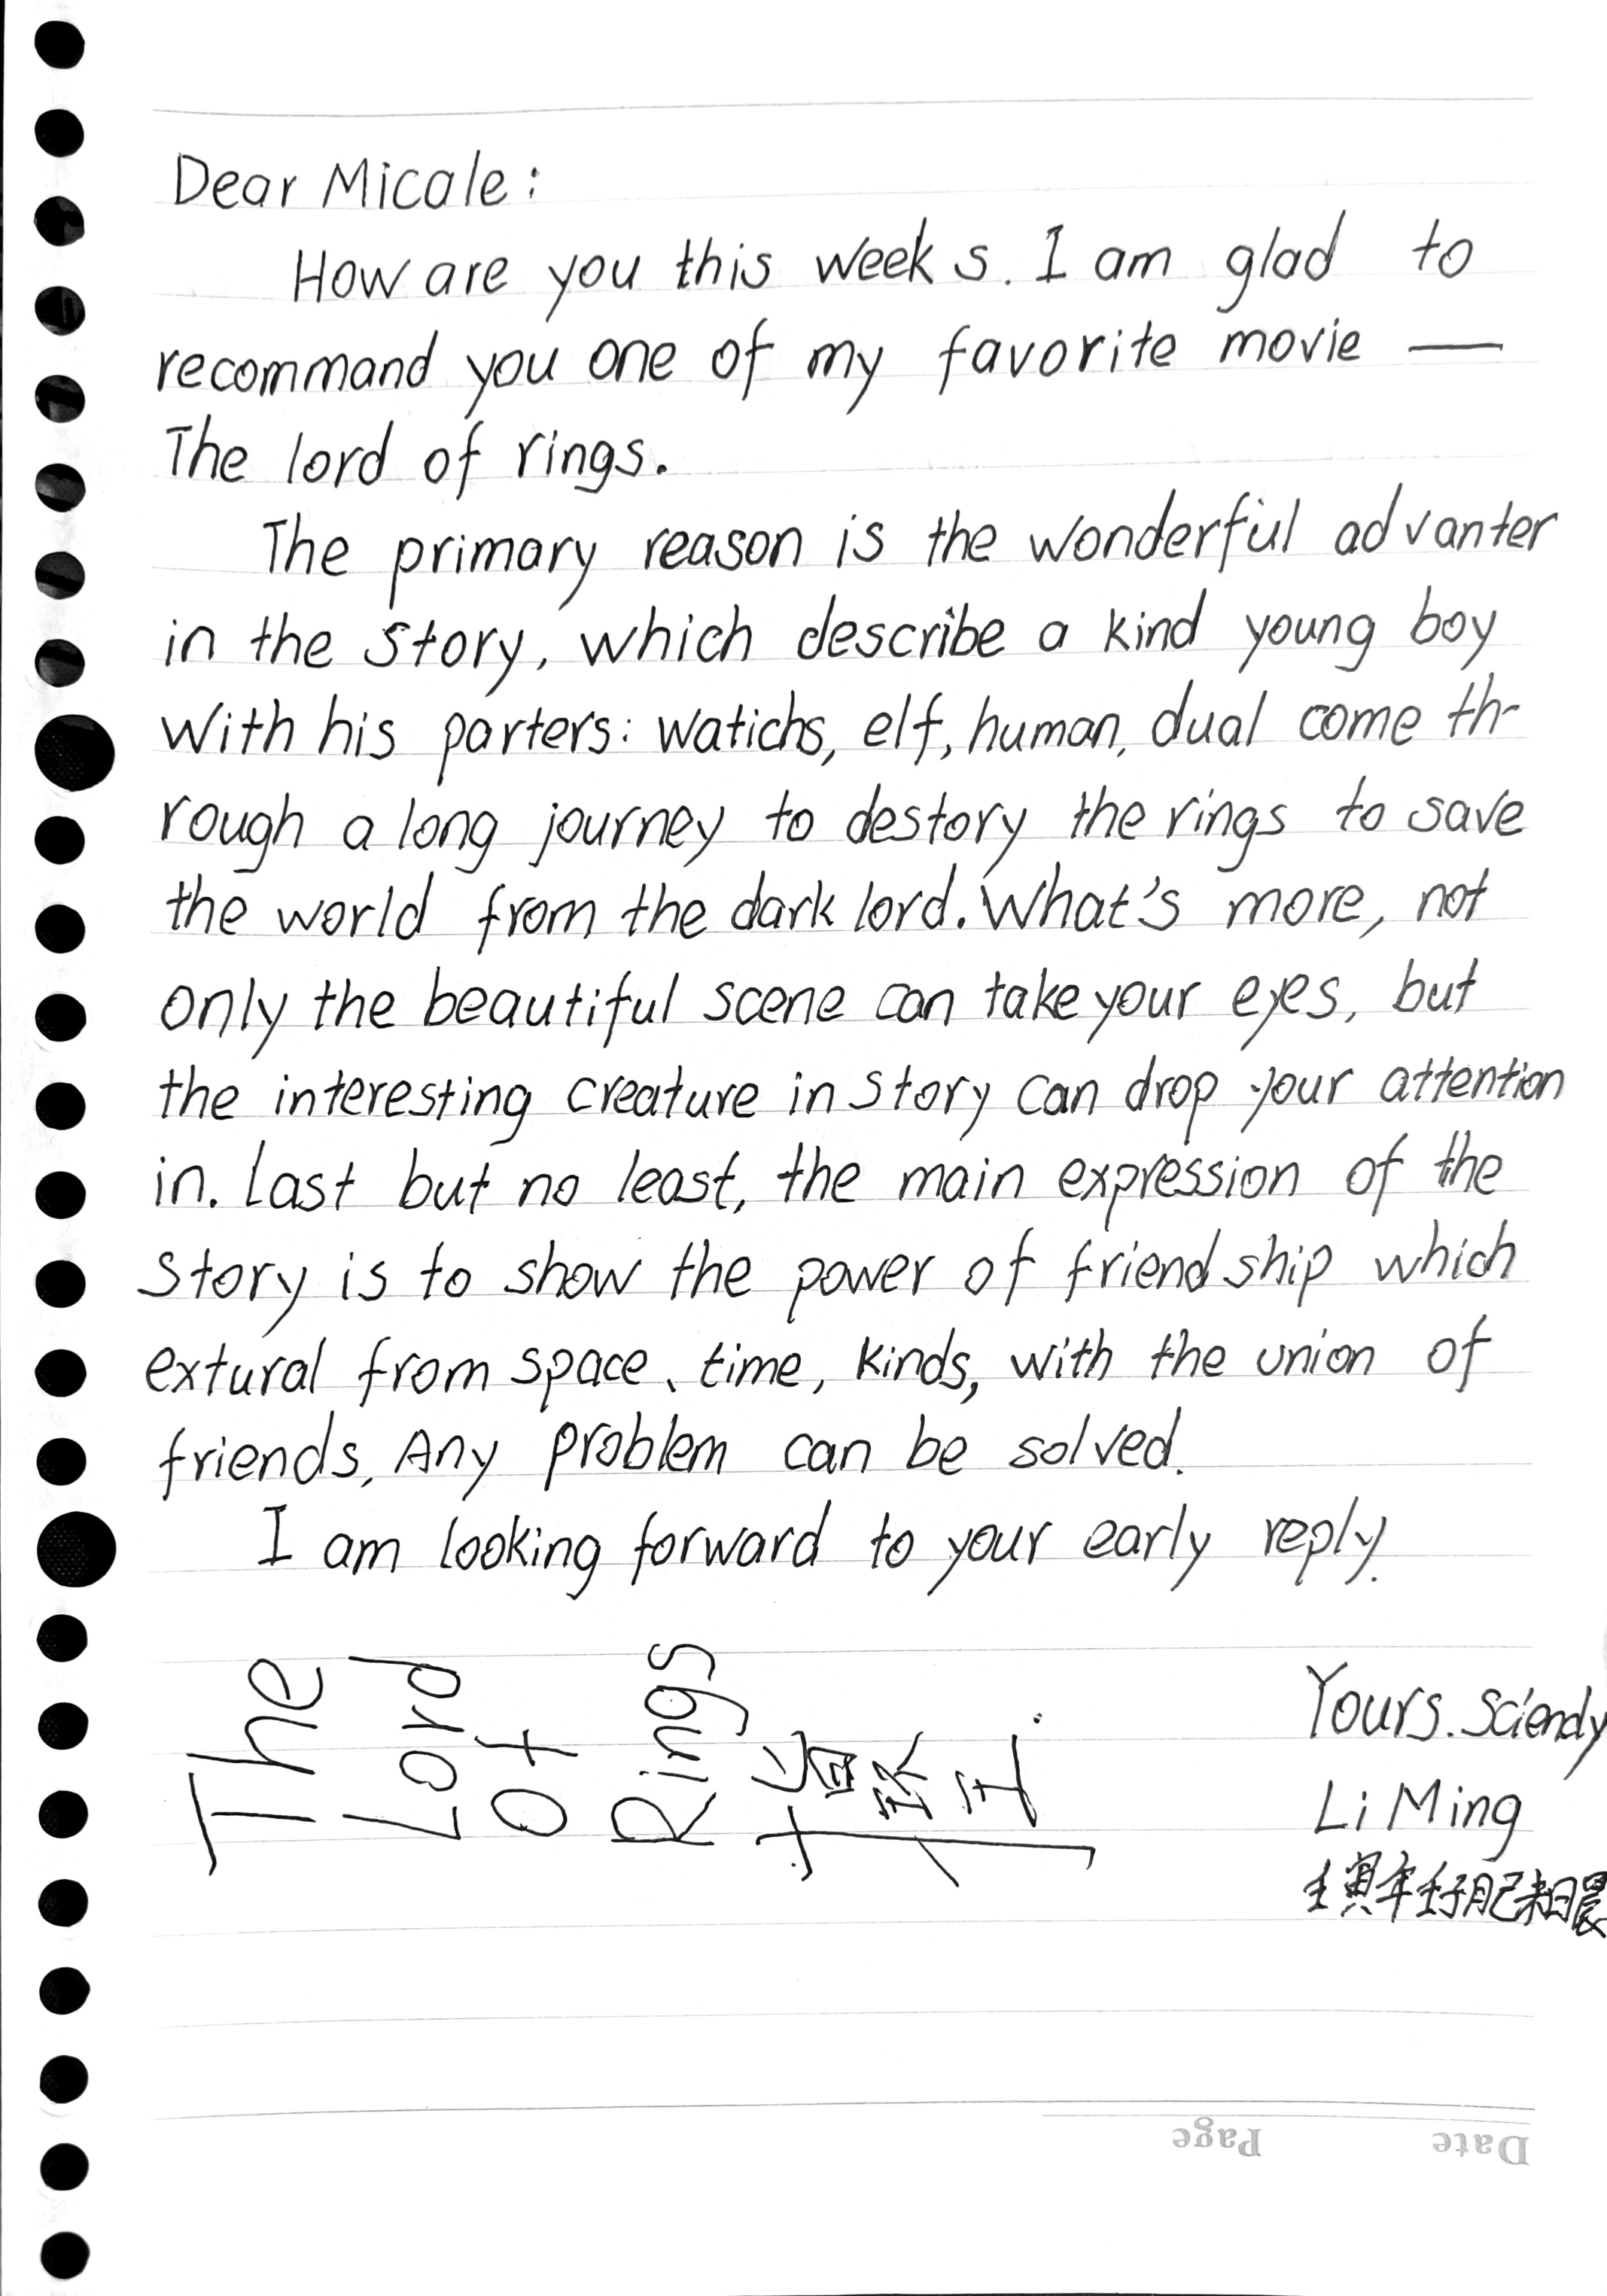 Dear Micale:
How are you this weeks. I am glad to
recommand you one of my favorite movie —
The lord of rings.
The primary reason is the wonderful advanter
in the story, which describe a kind young boy
with his parters: watichs, elf, human, dual come th-
rough a long journey to destory the rings to save
the world from the dark lord. What's more, not
only the beautiful scene can take your eyes, but
the interesting creature in story can drop your attention
in. Last but no least, the main expression of the
story is to show the power of friendship which
extural from space、time, kinds, with the union of
friends, Any problem can be solved.
I am looking forward to your early reply.
The
Lord
of
Rings
Yours. Sciendy
Li Ming
Page
Date